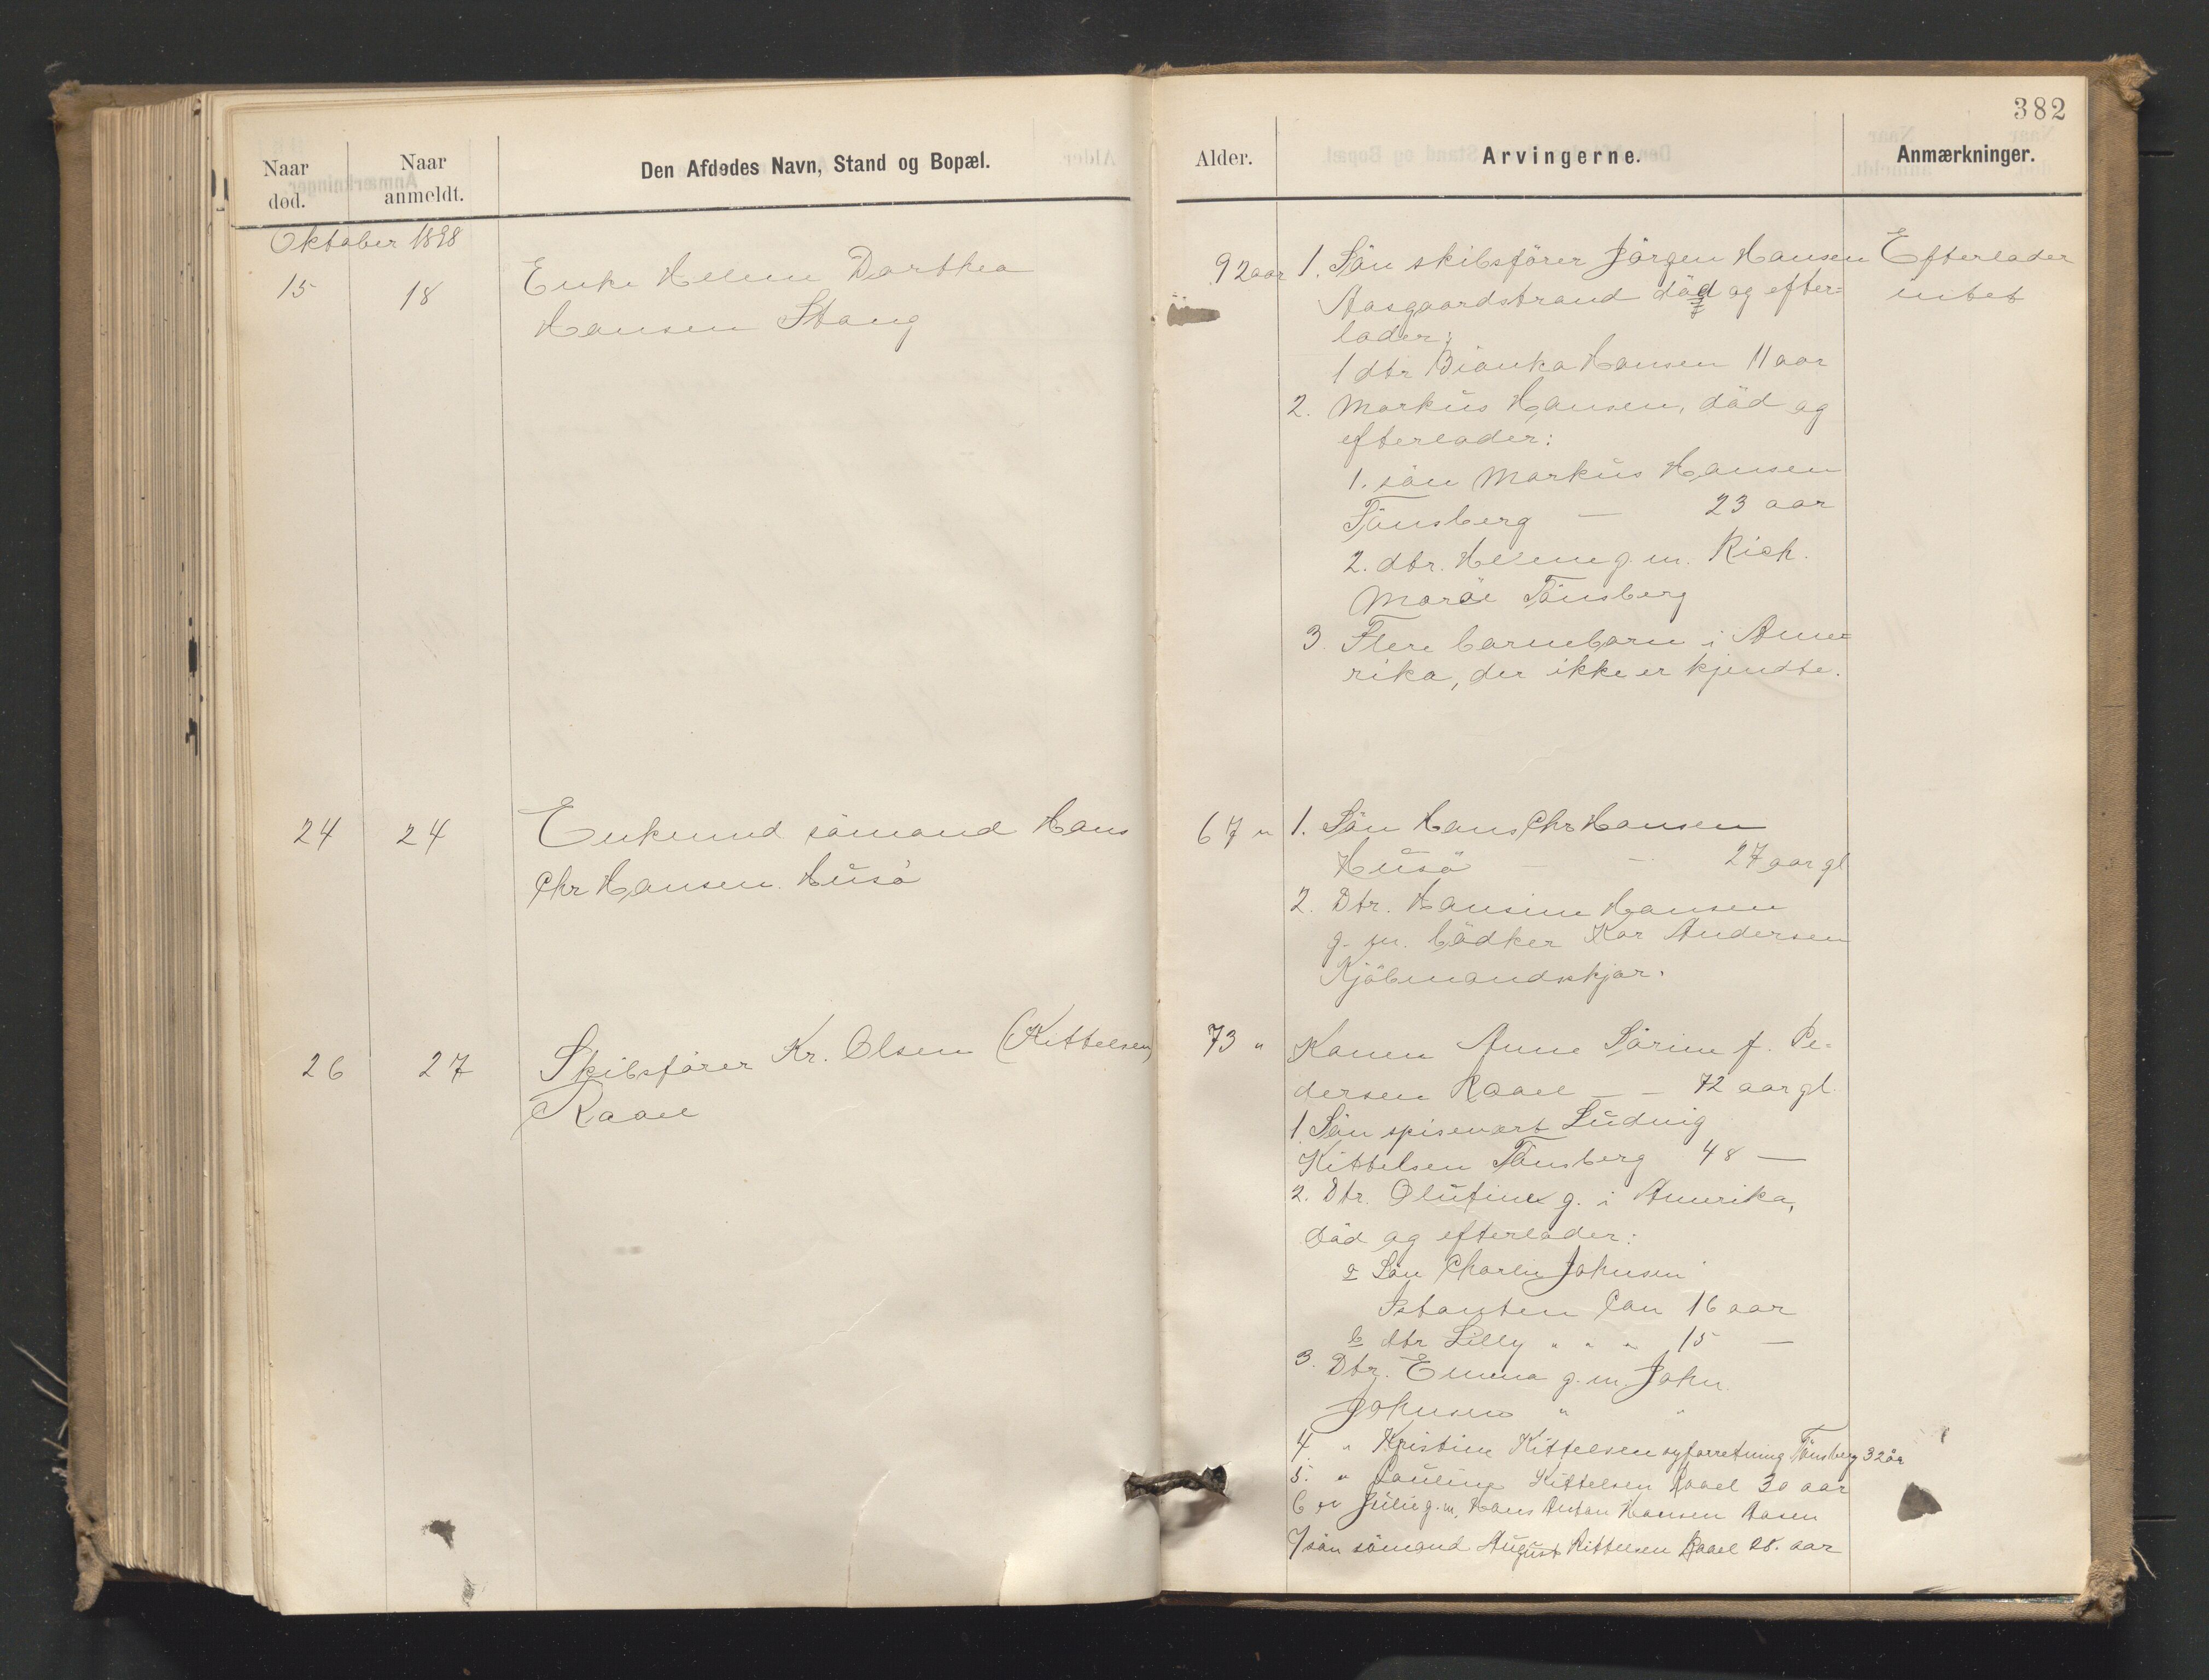 382
Naar død.
Naar anmeldt.
Den Afdødes Navn, Stand og Bopæl.
Alder.
Arvingerne.
Anmærkninger.
Oktober 1898
15
18
Enke Helene Dorthea
Hansen Stang
92 aar
1. Sön skibsförer Jörgen Hansen
Aasgaardstrand död og efter=
lader;
1 dtr Bianka Hansen 11 aar
2. Markus Hansen, död og
efterlader:
1. sön Markus Hansen
Tönsberg — 23 aar
2. dtr. Helene g. m. Rich.
Maröe Tönsberg
3. Flere barnebarn i Ame=
rika, der ikke er kjendte.
Efterlader
intet
24
24
Enkemd sömand Hans
Chr Hansen Husö
67 "
1. Sön Hans Chr Hansen
Husö - - 27 aar gl
2. Dtr. Hansine Hansen
g. m. bödker Kar Andersen
Kjöbmandskjær.
26
27
Skibsförer Kr. Olsen (Kittelsen)
Raael
73 "
Konen Anne Sörine f. Pe=
dersen Raael — — 72 aar gl.
1 Sön spisevært Ludvig
Kittelsen Tönsberg 48 —
2. Dtr. Olufine g. i Amerika,
död og efterlader:
a Sön Charlie Johnsen
Can 16 aar
b dtr Lilly " " " 15 —
3. Dtr. Emma g. m. John
Johnsen " "
4 " Kristine Kittelsen syforretning Tönsberg 32 år
5. " Pauline Kittelsen Raael 30 aar
6 " Julie g. m. Hans Anton Hansen Aasen
7 sön sömand August Kittelsen Raael 28. aar